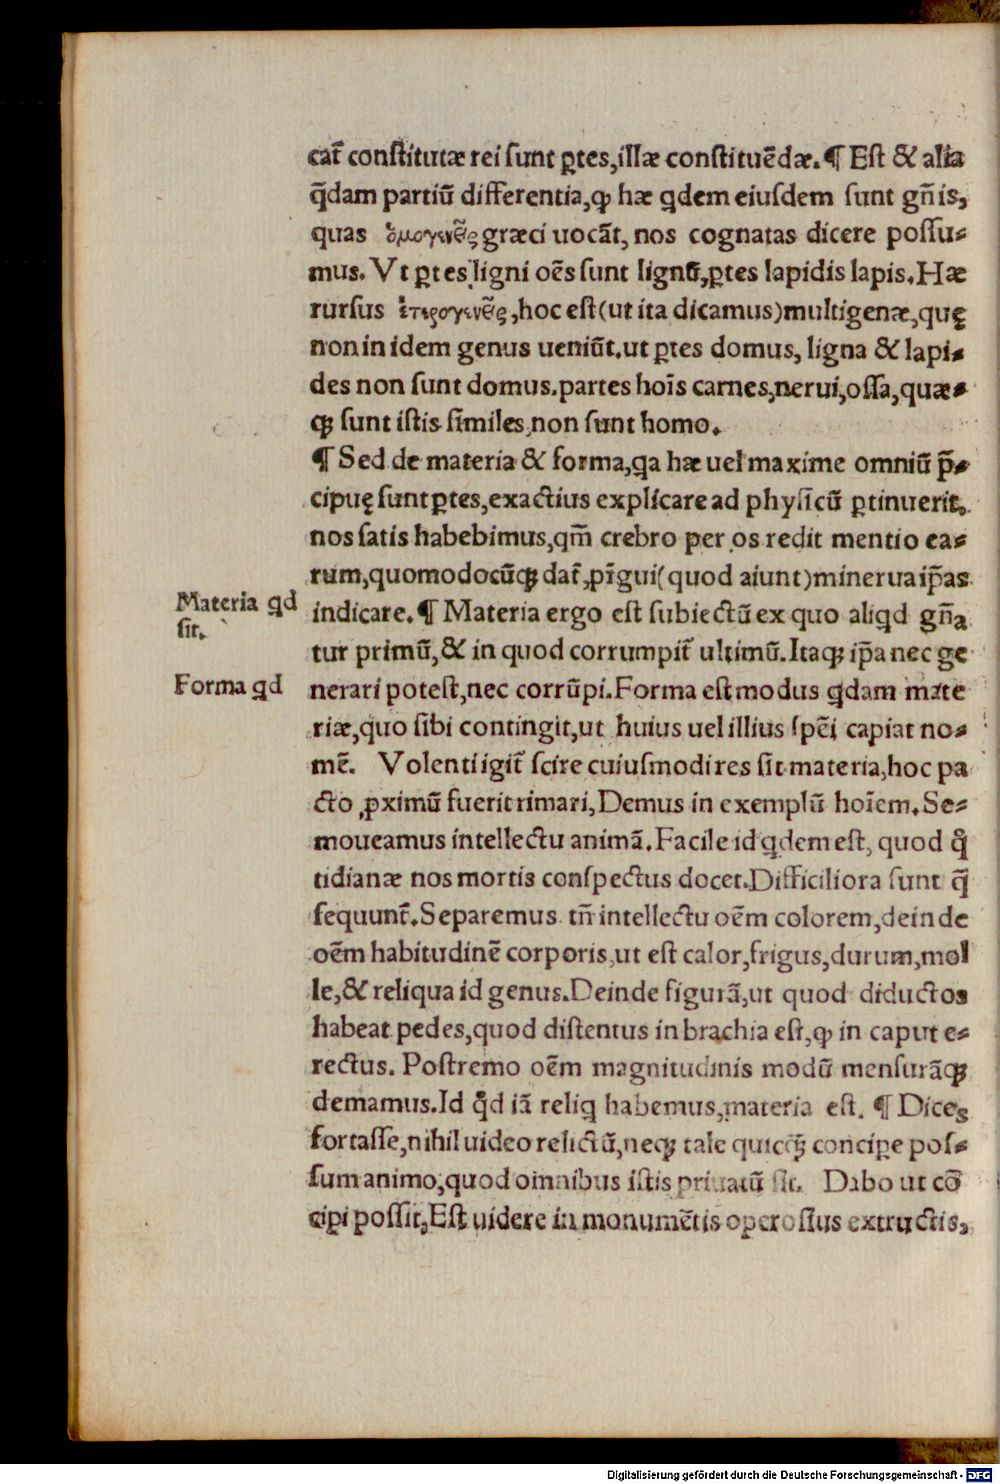 cat᷑ conſtitutæ rei ſunt ꝑtes,illæ conſtituēdæ.¶ Eſt & alia
q̄dam partiū differentia,ꝙ hæ qdem eiuſdem ſunt gn̄is,
quas ὁμογενε͂ς græci uocāt, nos cognatas dicere poſſu⸗
mus. Vt ꝑtes ligni oēs ſunt lignū,ꝑtes lapidis lapis.Hæ
rurſus ἑτερογενε͂ς,hoc eſt(ut ita dicamus)multigenæ,quę
non in idem genus ueniūt.ut ꝑtes domus, ligna & lapi⸗
des non ſunt domus.partes hoīs carnes,nerui,oſſa,quæ⸗
ꝗ ſunt iſtis ſimiles,non ſunt homo.
¶ Sed de materia & forma,qa hæ uel maxime omniū p̄⸗
cipuę ſunt ꝑtes,exactius explicare ad phyſicū ꝑtinuerit,
nos ſatis habebimus,qm̄ crebro per os redit mentio ea⸗
rum,quomodocūꝗ dat᷑,pīgui(quod aiunt)minerua ip̄as
Materia qd
ſit.
indicare.¶ Materia ergo eſt ſubiectū ex quo aliqd gn̄a
tur primū,& in quod corrumpit᷑ ultimū.Itaꝗ ip̄a nec ge
Forma qd
nerari poteſt,nec corrūpi.Forma eſt modus qdam mate
riæ,quo ſibi contingit,ut huius uel illius ſpēi capiat no⸗
mē. Volenti igit᷑ ſcire cuiuſmodi res ſit materia,hoc pa
cto ꝓximū fuerit rimari,Demus in exemplū hoīem.Se⸗
moueamus intellectu animā.Facile id qdem eſt, quod qͦ
tidianæ nos mortis conſpectus docet.Difficiliora ſunt q̄
ſequunt᷑.Separemus tn̄ intellectu oēm colorem,deinde
oēm habitudinē corporis,ut eſt calor,frigus,durum,mol
le,& reliqua id genus.Deinde figurā,ut quod diductos
habeat pedes,quod diſtentus in brachia eſt,ꝙ in caput e⸗
rectus. Poſtremo oēm magnitudinis modū menſurāꝗ
demamus.Id qͦd iā reliq habemus,materia eſt. ¶ Dices
fortaſſe,nihil uideo relictū,neꝗ tale quicꝗ̄ concipe poſ⸗
ſum animo,quod omnibus iſtis priuatū ſit. Dabo ut cō
cipi poſſit,Eſt uidere in monumētis operoſius extructis,
Digitalisierung gefördert durch die Deutsche Forschungsgemeinschaft - DFG